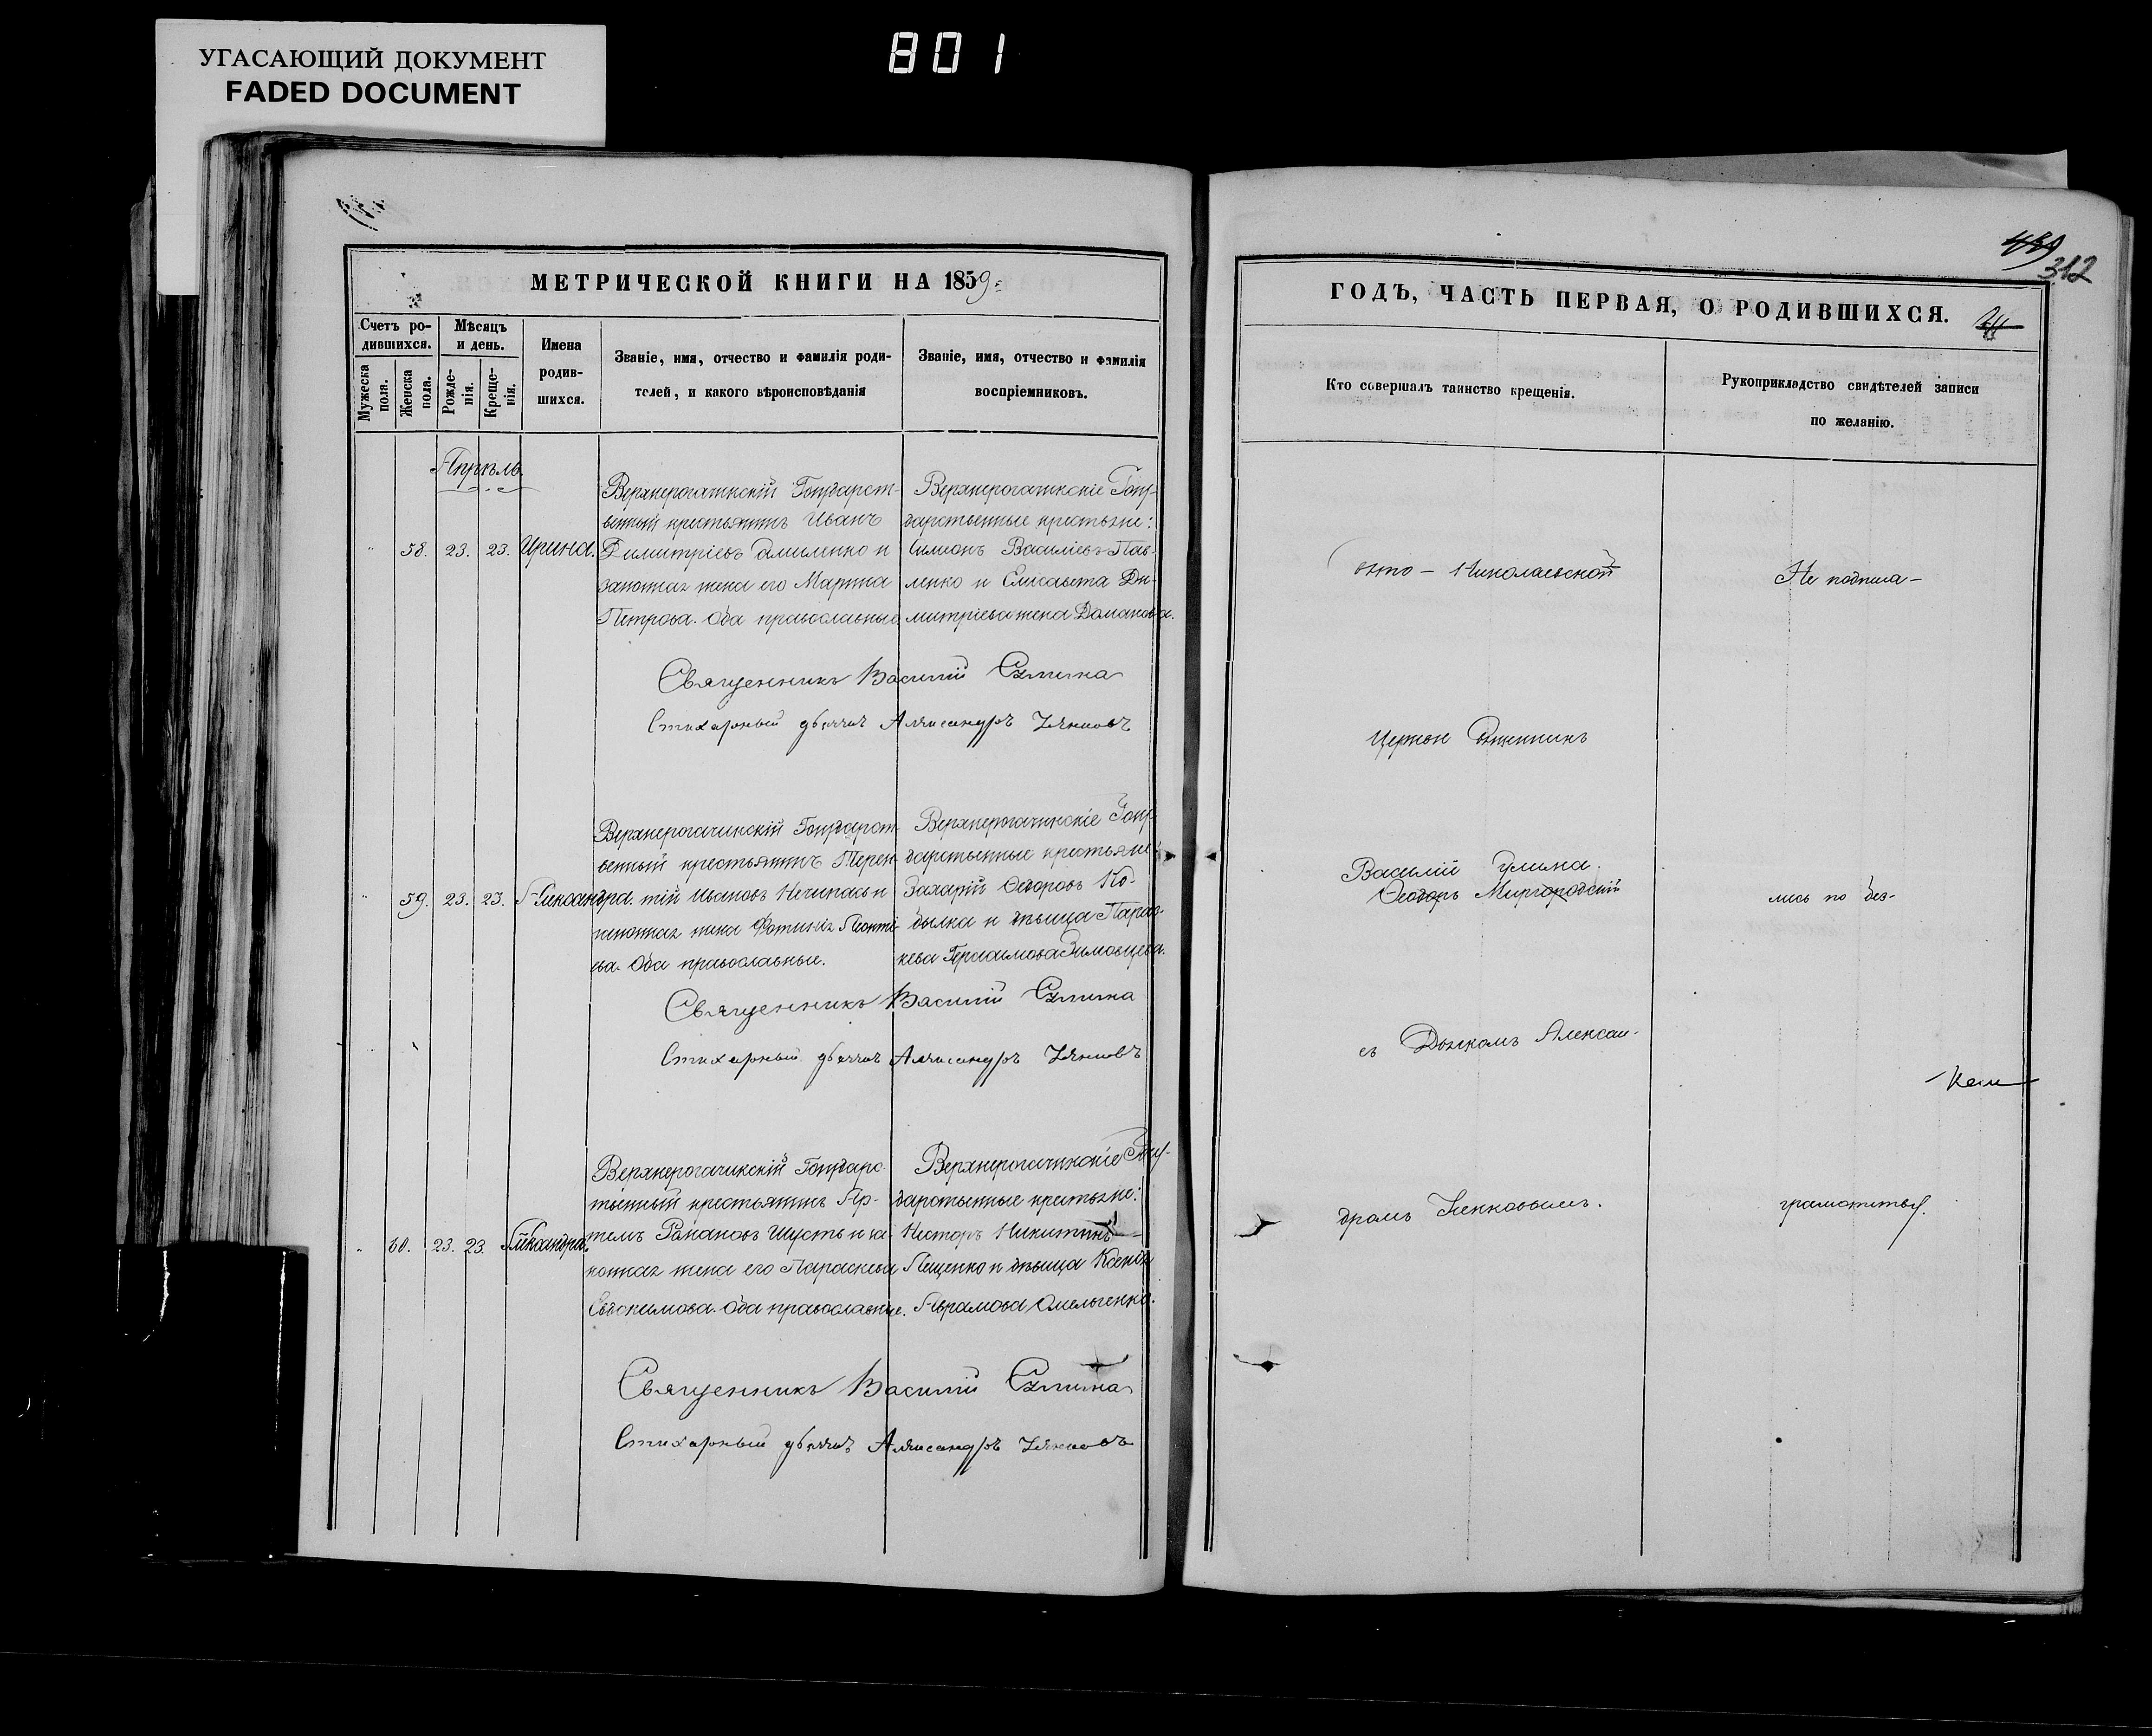 УГАСАЮЩИЙ ДОКУМЕНТ
FADED DOCUMENT
801
МЕТРИЧЕСКОЙ КНИГИ НА 1859
Счетъ ро-
дившихся.
Мужеска
пола.
Женска
пола.
Мѣсяцъ
и день.
Рожде-
нія.
Креще-
нія.
Имена
родив-
шихся.
Званіе, имя, отчество и фамилія роди-
телей, и какого вѣроисповѣданія
Званіе, имя, отчество и фамилія
воспріемниковъ.
Апрѣль.
58. 23. 23. Ирина.
Верхнерогачикскій Государст-
венный крестьянинъ Иванъ
Димитріевъ и
законная жена его Марина
Петрова. Оба православные.
Верхнерогачикскіе Госу-
дарственные крестьяне:
Симеонъ Василіевъ Пав-
ленко и Елисавета Ди-
митріева жена Доманова.
Священникъ Василій
Стихарный дьячокъ Александръ
59. 23. 23. Александра.
Верхнерогачикскій Государст-
венный крестьянинъ Терен-
тій Ивановъ и
законная жена Фотинія Леонті-
ева. Оба православные.
Верхнерогачикскіе Госу-
дарственные крестьяне:
Захарій Ѳедоровъ Ко-
былка и дѣвица Парас-
кева Герасимова
Священникъ Василій
Стихарный дьячокъ Александръ
60. 23. 23. Александра.
Верхнерогачикскій Государс-
твенный крестьянинъ Ар-
темъ Шусть и за-
конная жена его Параскева
Евдокимова. Оба православные.
Верхнерогачикскіе Госу-
дарственные крестьяне:
Несторъ Никитинъ
Лещенко и дѣвица Ксенія
Аврамова Омельченко.
Священникъ Василій
Стихарный дьячокъ Александръ
312
ГОДЪ, ЧАСТЬ ПЕРВАЯ, О РОДИВШИХСЯ.
Кто совершалъ таинство крещенія.
Рукоприкладство свидѣтелей записи
по желанію.
Николаевской
Церкви Священникъ
Василій
Ѳеодоръ Миргородскій
съ Дьячкомъ Алексан-
дромъ
Не подписа-
лись по без-
грамотству.